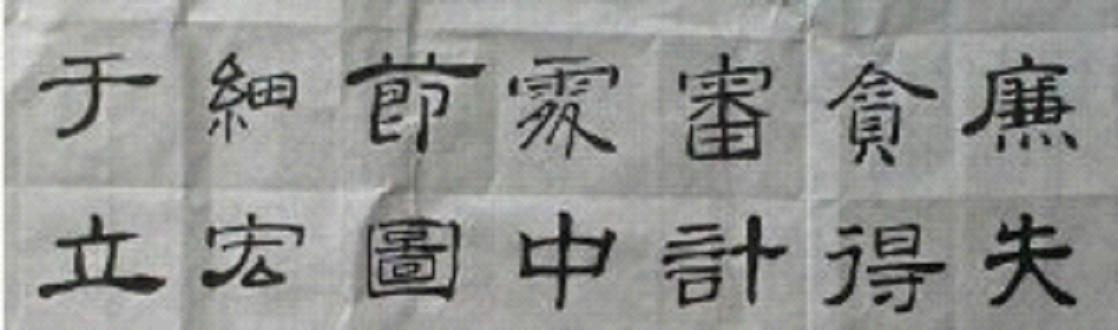 于細節處審貪廉
立宏圖中計得失